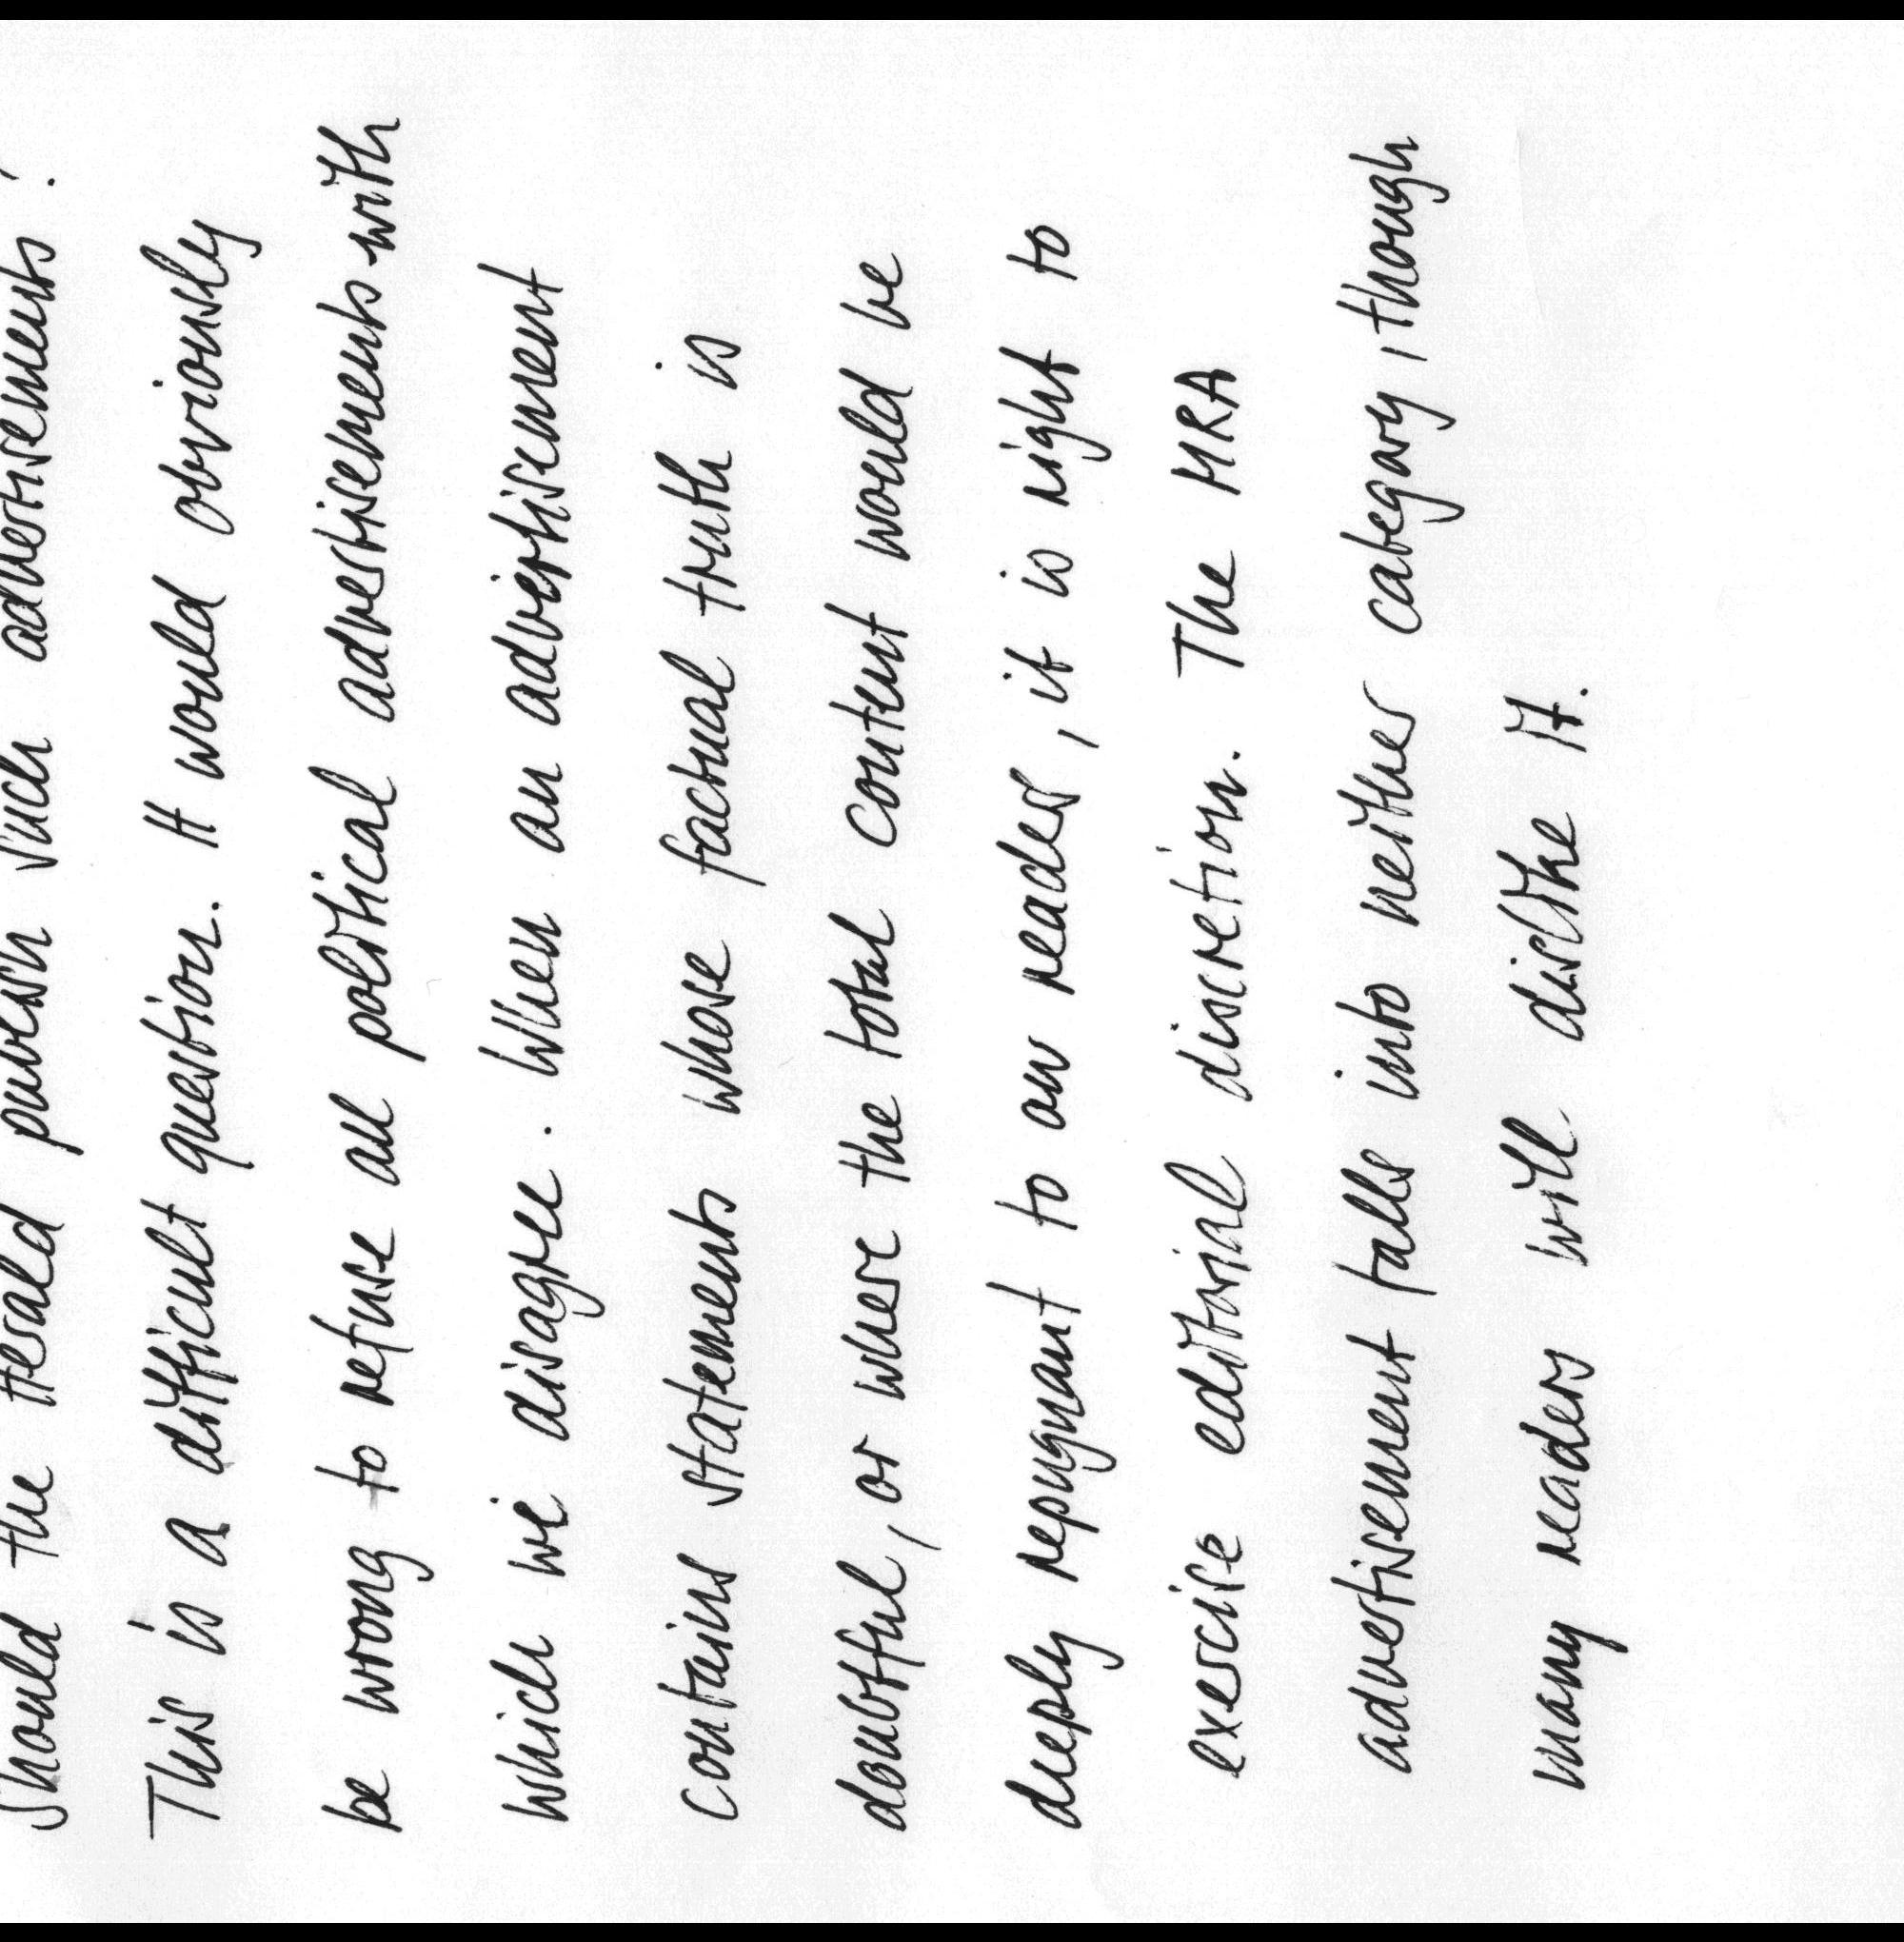 Should the Herald publish such advertisements?
This is a difficult question. It would obviously
be wrong to refuse all political advertisements with
which we disagree. When an advertisement
contains statements whose factual truth is
doubtful, or where the total content would be
deeply repugnant to our reader, it is right to
exercise editorial discretion. The MRA
advertisement falls into neither category, though
many readers will dislike it.